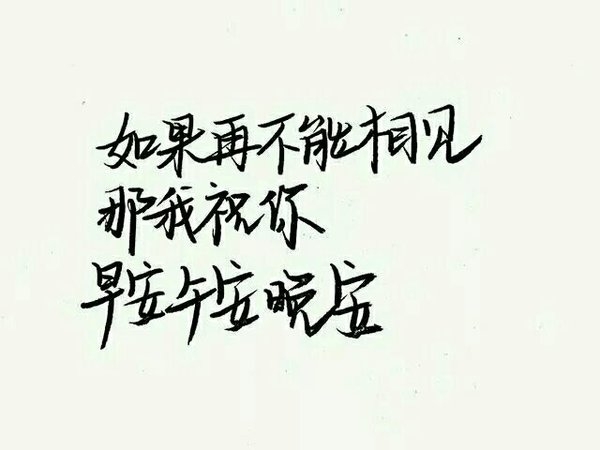 如果再不能相见
那我祝你
早安午安晚安